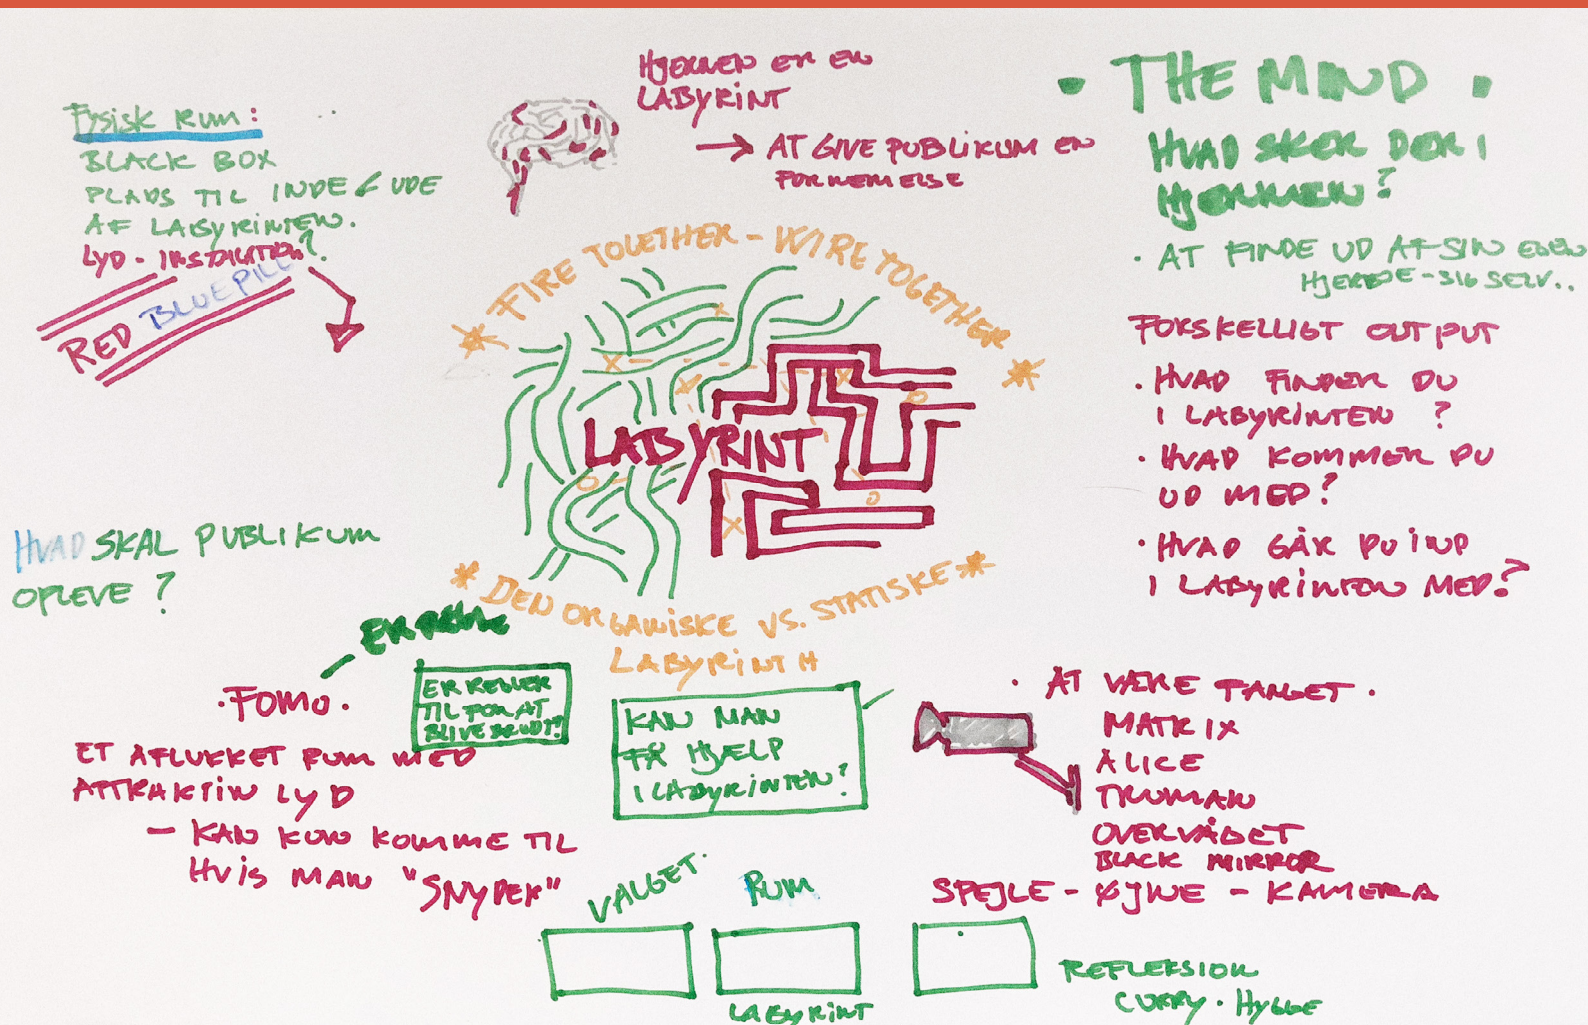 Fysisk Rum:
BLACK BOX
PLADS TIL INDE & UDE
AF LABYRINTEN.
LYD - INSTALLATION?
RED BLUE PILL
HJERNEN ER EN
LABYRINT
→ AT GIVE PUBLIKUM EN
FORNEMMELSE
• THE MIND •
HVAD SKER DER I
HJERNEN?
• AT FINDE UD AF SIN EGEN
HJERNE - SIG SELV..
FORSKELLIGT OUTPUT
• HVAD FINDER DU
I LABYRINTEN ?
• HVAD KOMMER DU
UD MED?
• HVAD GÅR DU IND
I LABYRINTEN MED?
* FIRE TOGETHER - WIRE TOGETHER *
LABYRINT
* DEN ORGANISKE VS. STATISKE *
LABYRINTH
HVAD SKAL PUBLIKUM
OPLEVE ?
ER REGLE
• FOMO •
ER REGLER
TIL FOR AT
BLIVE BRUDT?
ET AFLUKKET RUM MED
ATTRAKTIV LYD
- KAN KUN KOMME TIL
HVIS MAN "SNYDER"
KAN MAN
FÅ HJÆLP
I LABYRINTEN?
• AT VÆRE FANGET •
MATRIX
ALICE
TRUMAN
OVERVÅGET
BLACK MIRROR
SPEJLE - ØJNE - KAMERA
VALGET.
RUM
LABYRINT
REFLEKSION
CURRY • HYGGE